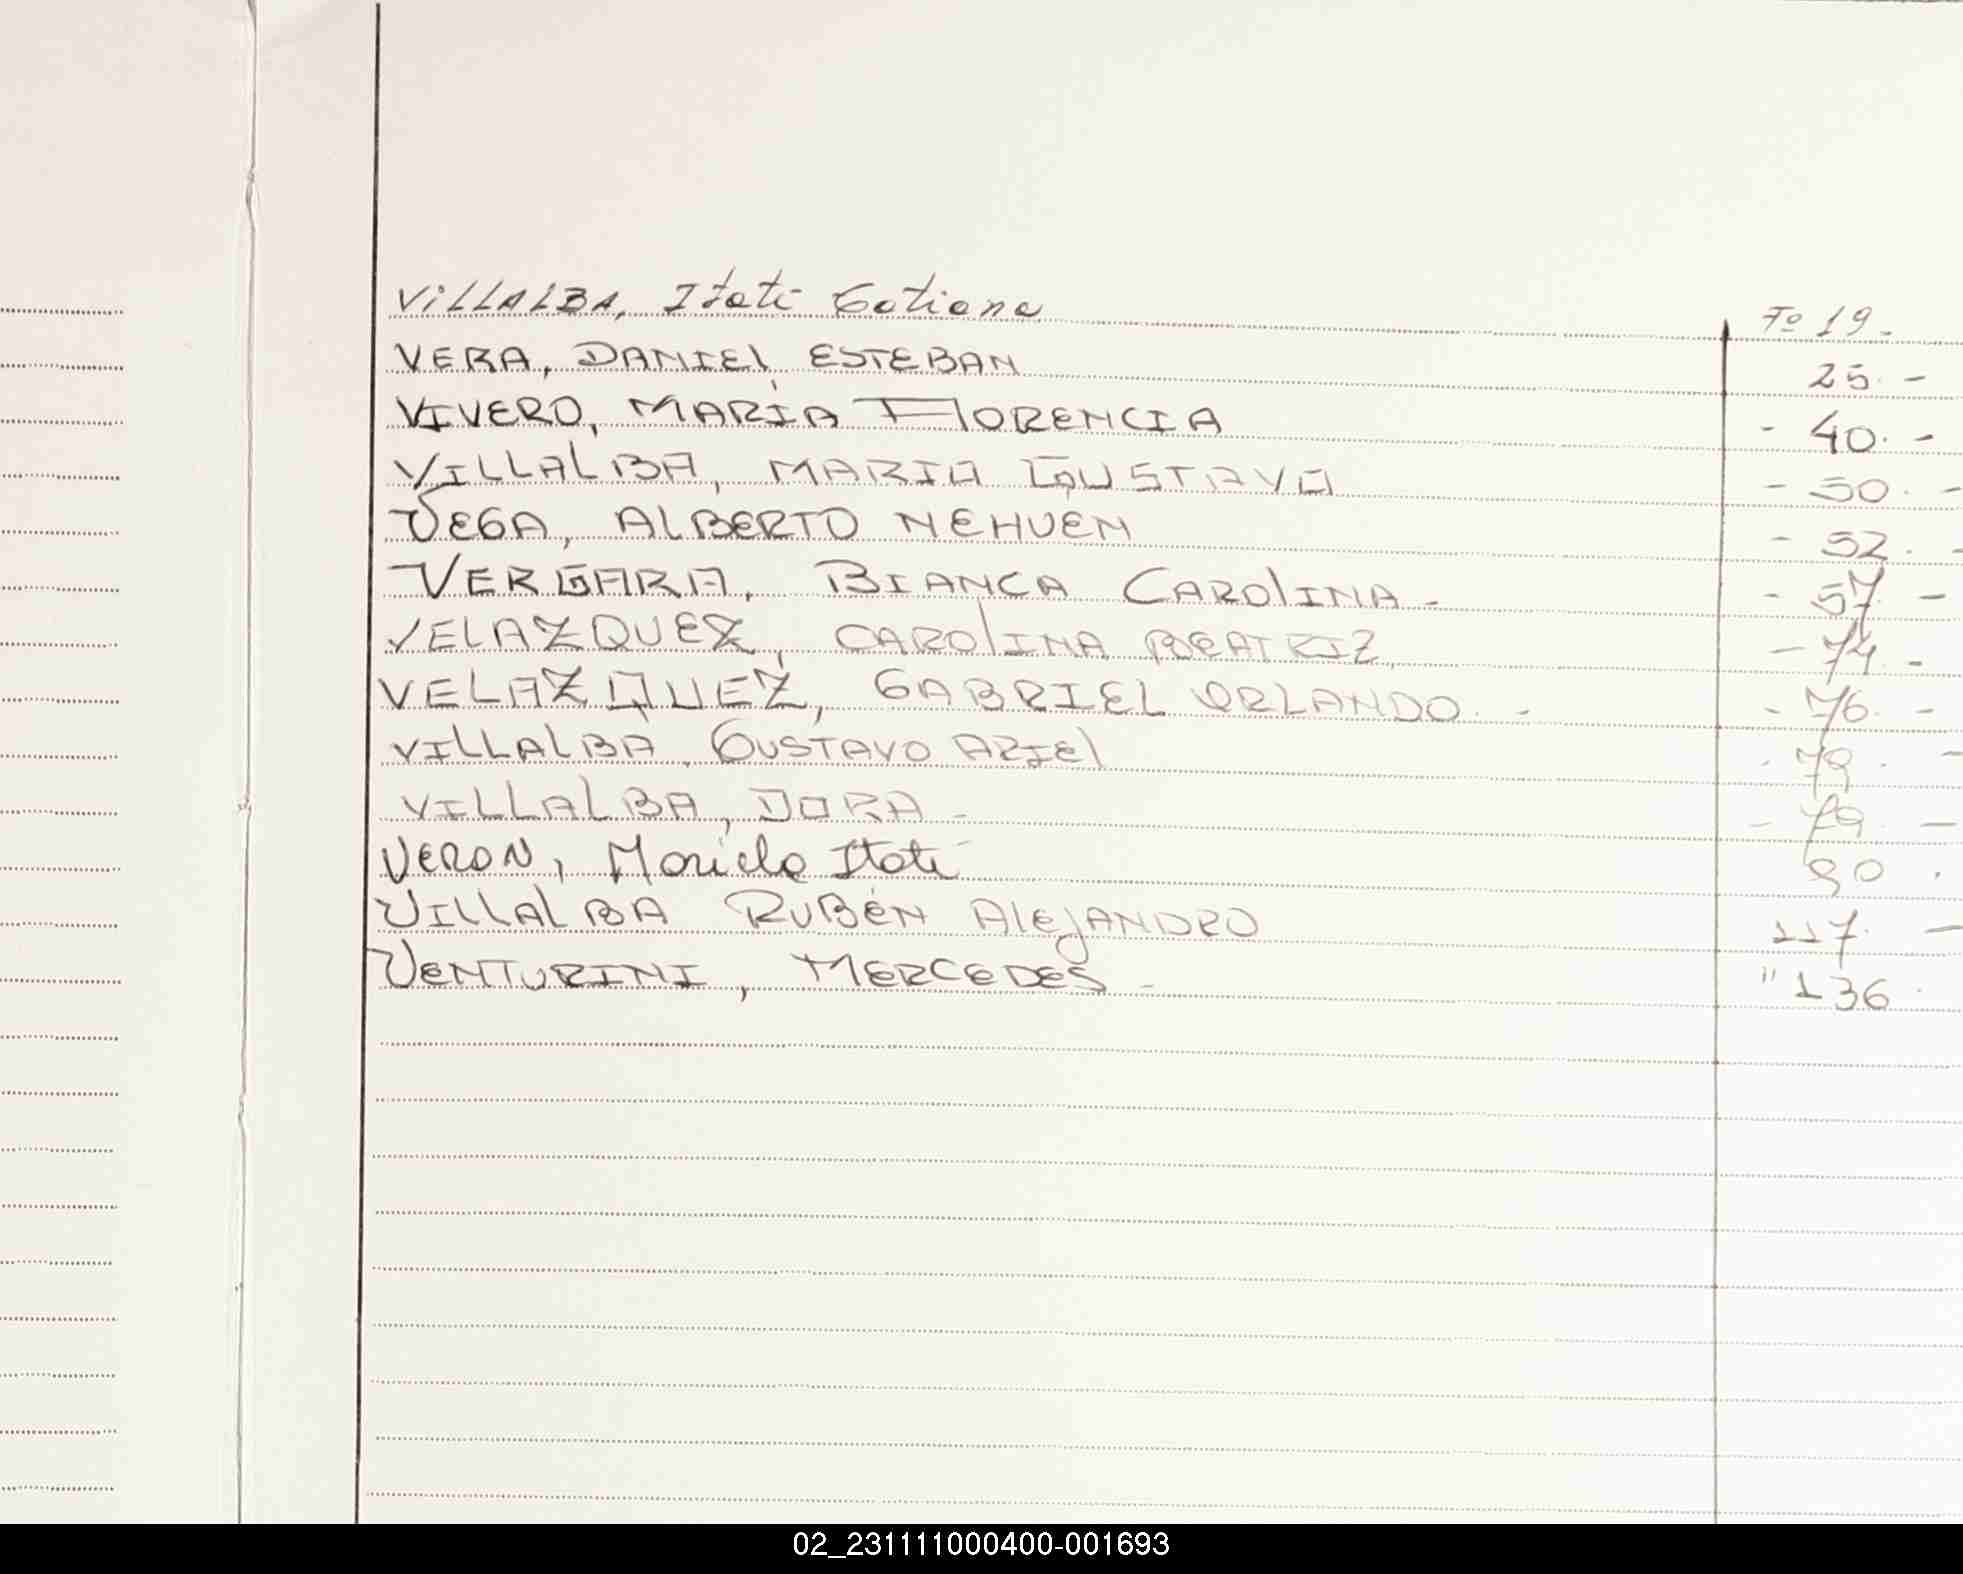 VILLALBA, Itatí Tatiana Fº 19.-
VERA, DANIEL ESTEBAN 25. -
VIVERO, MARÍA FLORENCIA - 40. -
VILLALBA, MARIO GUSTAVO - 50. -
VEGA, ALBERTO NEHUEN - 52. -
VERGARA, BIANCA CAROLINA - - 57. -
VELAZQUEZ, CAROLINA BEATRIZ - 74. -
VELAZQUEZ, GABRIEL ORLANDO. - - 76. -
VILLALBA, GUSTAVO ARIEL - 79. -
VILLALBA, DORA - - 79. -
VERON, Mariela Itatí 90 .
VILLALBA RUBÉN ALEJANDRO 117. -
VENTURINI, MERCEDES - " 136 .
02_231111000400-001693